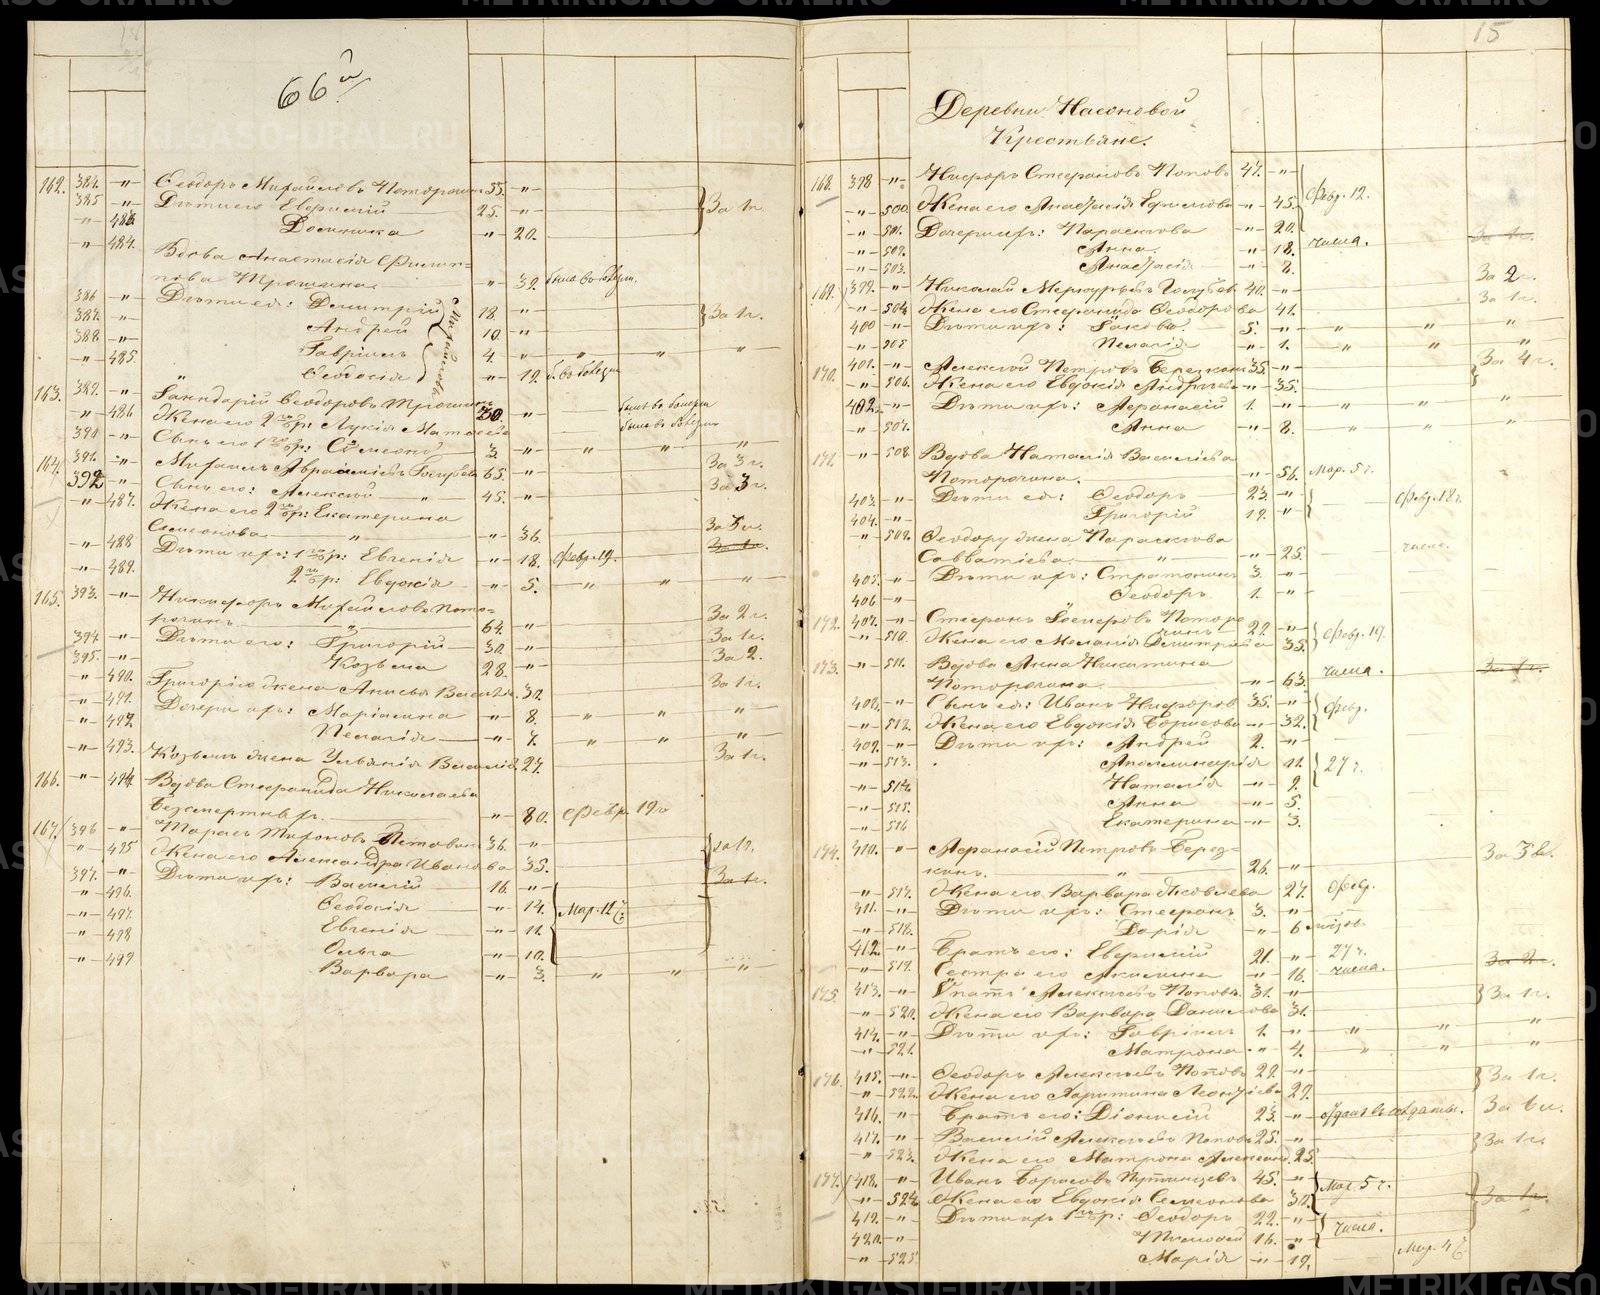 66й
162. 384. -"- Ѳеодоръ Михайловъ Поторочинъ 55. -"-
385 -"- Дѣти его Евфимiй 25. -"- За 1 г.
-"- 483. Домника -"- 20.
-"- 484. Вдова Анастасiя Филип-
пова Трошина -"- 39. была въ болѣзн.
386 -"- Дѣти ея: Димитрiй 18 -"-
387. -"- Андрей 10. -"- За 1 г.
388. -"- Гаврiилъ 4. " " "
-"- 485. Ѳеодосiя -"- 19. б. въ болѣзн
Михайловы
163. 389. -"- Ѳеодоровъ Трошинъ 30. -"- былъ въ болѣзни
-"- 486 Жена его 2го бр: Лукiя была въ болѣзни
390 -"- Сынъ его 1го бр: Сѵмеонъ 3 " " "
164. 391. -"- Михаилъ Авраамiевъ Голубевъ 65. -"- За 3 г.
392 -"- Сынъ его: Алексѣй " 45. -"- За 3 г.
-"- 487. Жена его 2го бр: Екатерина
Симеонова " -"- 36. За 3 г.
-"- 488 Дѣти ихъ: 1го бр: Евгенiя -"- 18. Февр. 19. За 1 г.
-"- 489. 2го бр: Евдокiя -"- 5. " " "
165. 393. -"- Никифоръ Михайловъ Пото-
рочинъ " 64. -"- За 2 г.
394 -"- Дѣти его: Григорiй 30. -"- За 1 г.
395. -"- Козьма 28 -"- За 2.
-"- 490. Григорiя жена Анисья 30. За 1 г.
-"- 491. Дочери ихъ: Марiамна -"- 8. " " "
-"- 492 Пелагiя -"- 7. " " "
-"- 493. Козьмы жена Ульянiя 27. За 1 г.
166. " 494 Вдова Стефанида Николаева
Безсмертныхъ -"- 80. Февр. 19
167. 396 -"- Тарасъ Тихоновъ 36. -"-
-"- 495 Жена его Александра Иванова 35. За 1 г.
397. -"- Дѣти ихъ: Василiй 16. -"- За 1 г.
-"- 496. Ѳеодосiя -"- 14.
-"- 497. Евгенiя -"- 11. Мар. 12
-"- 498 Ольга -"- 10.
-"- 499 Варвара -"- 3. " " "
15
Деревни Насоновой
Крестьяне.
168. 398 -"- Никифоръ Стефановъ Поповъ 47. -"-
-"- 500. Жена его Анастасiя Ефимова -"- 45. Февр. 12.
-"- 501. Дочери ихъ: Параскева -"- 20.
-"- 502. Анна. -"- 18. числа. За 1 г.
-"- 503. Анастасiя -"- 8.
169. 399. -"- Николай Меркурьевъ Голубевъ 40. -"- За 2
-"- 504 Жена его Стефанида Ѳеодорова 41. За 1 г.
400 -"- Дѣти ихъ: Iаковъ 5. -"- " " "
-"- 505 Пелагiя -"- 1. " " "
170. 401. -"- Алексѣй Петровъ Березкинъ 35. -"- За 4 г.
-"- 506. Жена его Евдокiя Андреева -"- 35.
402. -"- Дѣти ихъ: Афанасiй 1. -"- " " "
-"- 507. Анна -"- 8. " " "
171. -"- 508 Вдова Наталiя Васильева
Поторочина. -"- 56. Мар. 5 г.
403. -"- Дѣти ея: Ѳеодоръ 23. -"-
404. -"- Григорiй 19. -"- Февр. 18 г.
-"- 509. Ѳеодору жена Параскева
Савватiева -"- 25. числа.
405. -"- Дѣти ихъ: Стратоникъ 3. -"-
406 -"- Ѳеодоръ 1. -"-
172. 407. -"- Стефанъ Поторо-
чинъ 29. -"- Февр. 19.
-"- 510. Жена его Меланiя Димитрiева 35.
173. -"- 511. Вдова Анна Никитина числа. За 1 г.
Поторочина -"- 63.
408. -"- Сынъ ея: Иванъ Никифоровъ 35. -"- Февр.
-"- 512. Жена его Евдокiя Борисова -"- 32.
409. -"- Дѣти ихъ: Андрей 2. -"-
-"- 513. Аполлинарiя 11. 27 г.
-"- 514. Наталiя -"- 9.
-"- 515. Анна -"- 5.
-"- 516 Екатерина -"- 3.
174. 410. " Афанасiй Петровъ Берез- За 3 г.
кинъ. " 26. "
-"- 517. Жена его Варвара Яковлева 27. Февр.
411. -"- Дѣти ихъ: Стефанъ 3. -"-
-"- 518. Дарiя -"- 6
412. -"- Братъ его: Евфимiй 21. -"- 27 г.
-"- 519. Сестра его Акилина -"- 16. числа. За 2
175. 413. -"- Игнатiй Алексѣевъ Поповъ. 31. -"- За 1 г.
-"- 520. Жена его Варвара Данилова 31.
414. -"- Дѣти ихъ: Гаврiилъ 1. -"- " " "
-"- 521. Матрона -"- 4. " " "
176. 415. -"- Ѳеодоръ Алексѣевъ Поповъ 29. -"- За 1 г.
-"- 522. Жена его Харитина Леонтiева 29.
416. -"- Братъ его: Дiонисiй 23. -"- отданъ въ солдаты. За 6 г.
417. -"- Василiй Алексѣевъ Поповъ 25. -"- За 1 г.
-"- 523. Жена его Матрона 25
177. 418. -"- Иванъ Борисовъ 45. -"- Мар. 5 г.
-"- 524. Жена его Евдокiя Симеонова 30. За 1 г.
419. -"- Дѣти ихъ 1го бр: Ѳеодоръ 22. -"- числа.
420. -"- 16. -"-
-"- 525 Марiя -"- 19. Мар. 4
METRIKI.GASO-URAL.RU